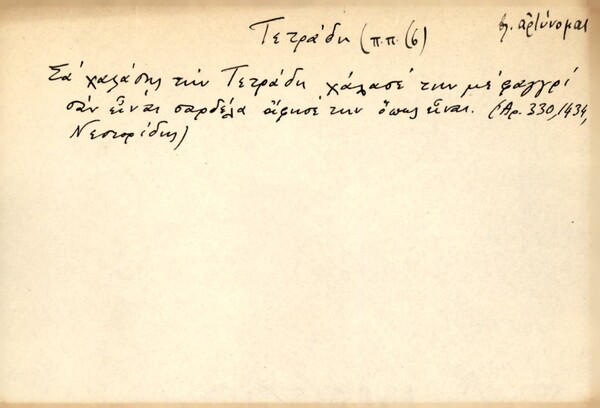 Τετράδη (π.π. (6)
βλ. ἀρτύνομαι
Σὰ χαλάσης τὴν Τετράδη χάλασέ την μὲ φαγγρὶ
σὰν εἶναι σαρδέλα ἄφησέ την ὅπως εἶναι. (Ἀρ. 330, 1434,
Νεστορίδης)